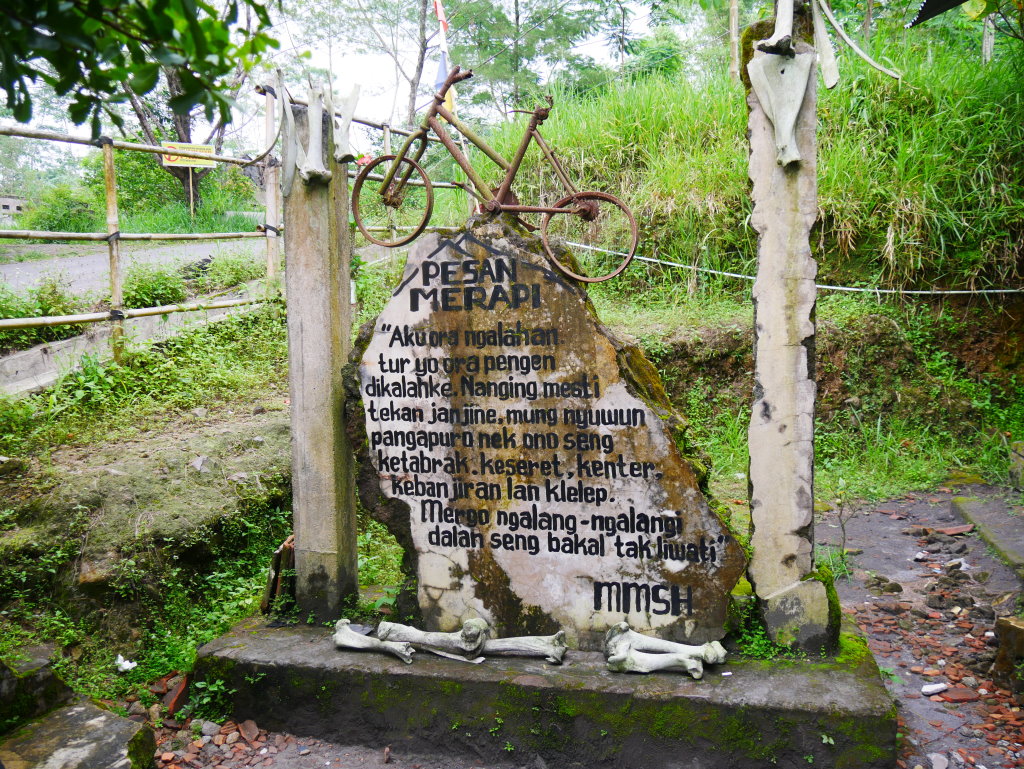 PESAN
MERAPI
"Aku ora ngalahan
tur yo ora pengen
dikalahke. Nanging mesti
tekan janjine, mung nyuwun
pangapuro nek ono seng
ketabrak, keseret, kenter,
kebanjiran lan klelep.
Mergo ngalang-ngalangi
dalah seng bakal tak liwati"
MMSH